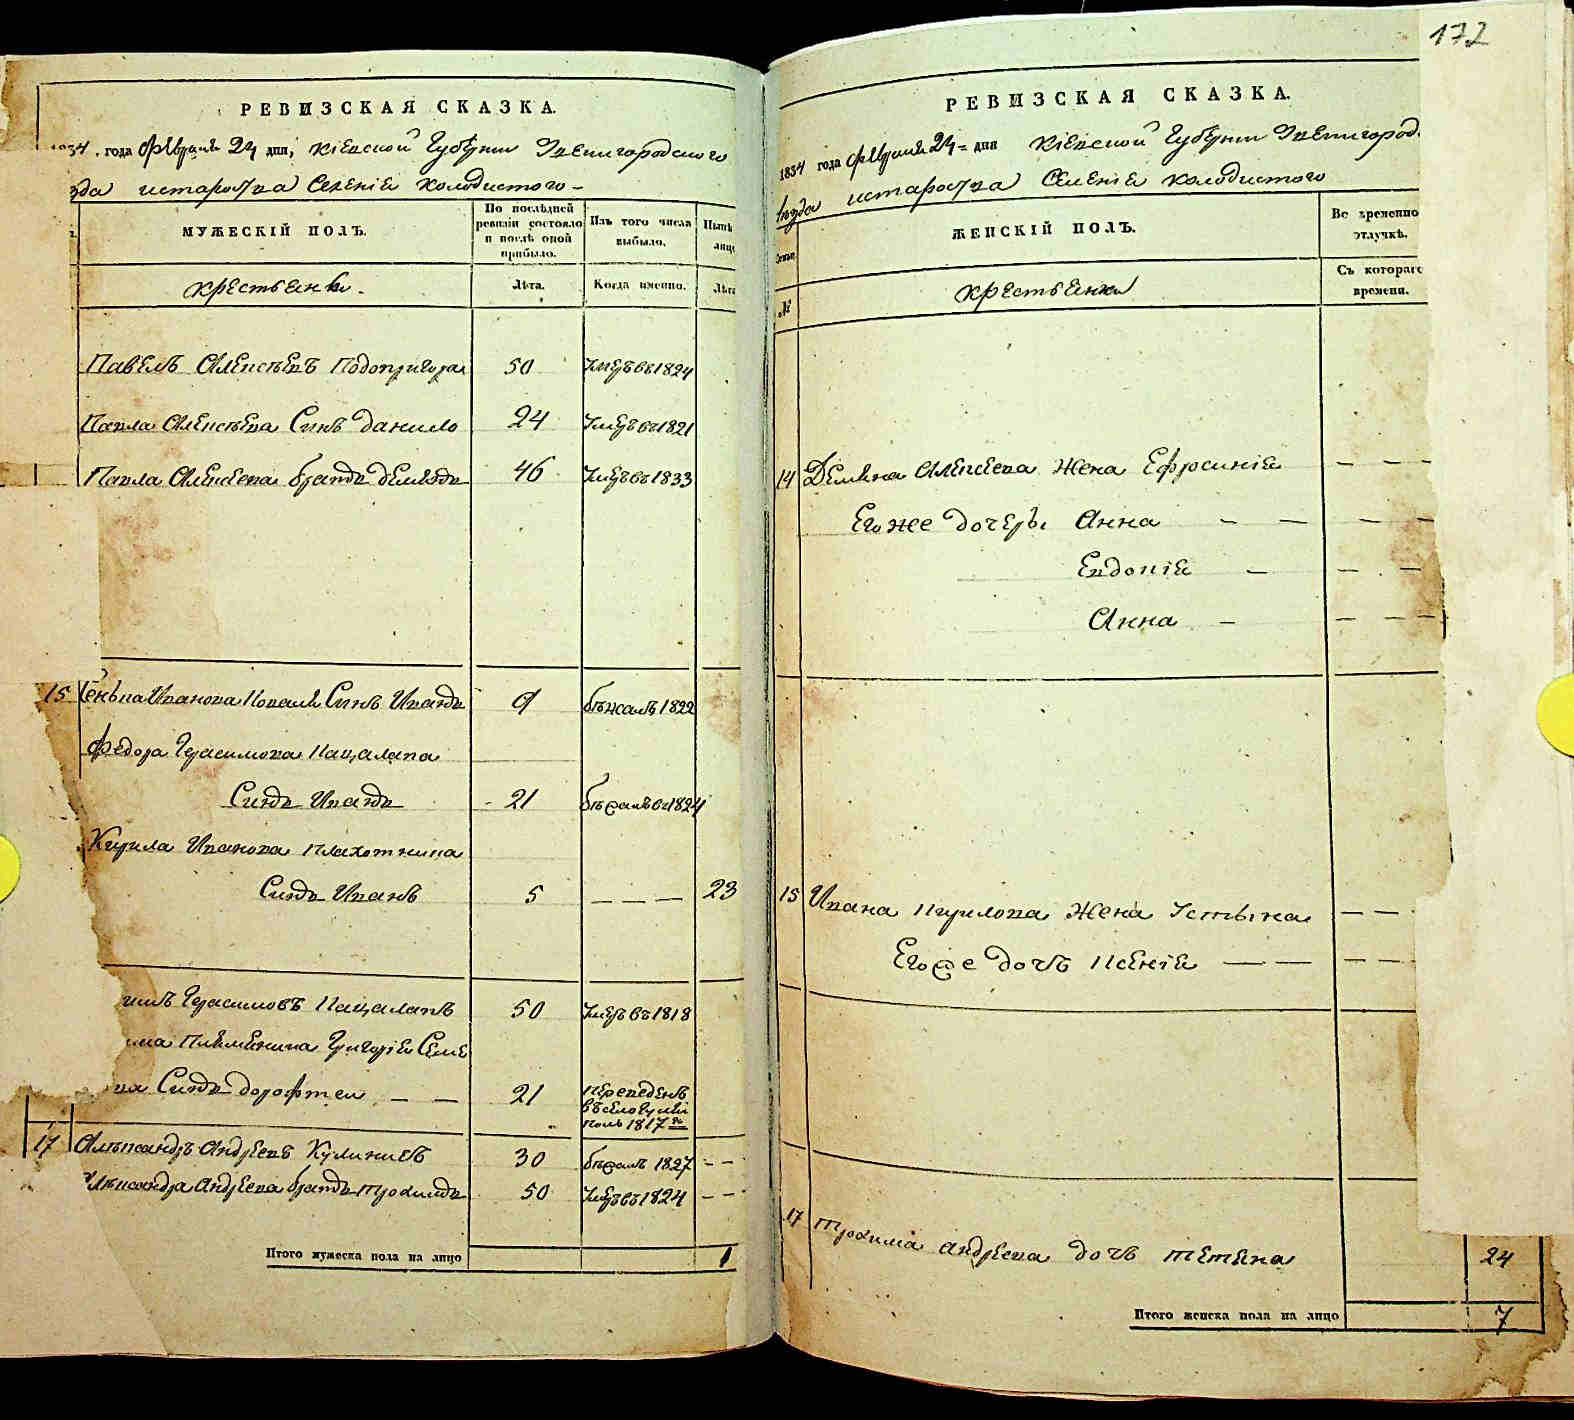 РЕВИЗСКАЯ СКАЗКА.
1834 года Февраля 24 дня, Кіевской Губерніи Звенигородского
зда истароства Селеніе Колодистого
МУЖЕСКІЙ ПОЛЪ.
По послѣдней ревизіи состояло и послѣ оной прибыло.
Изъ того числа выбыло.
Нынѣ лице
крестьянъ
Лѣта.
Когда именно.
Лѣта
Павелъ Алексѣевъ Подопригора 50 Умеръ въ 1824
Павла Алексѣева Сынъ Данило 24 Умеръ въ 1821
Павла Алексѣева братъ Демянъ 46 Умеръ въ 1833
15 Ивана Коваля Сынъ Иванъ 9 бѣжалъ 1822
Федора Герасимова Пацалапа
Сынъ Иванъ 21 бѣжалъ въ 1824
Кирила Иванова Плахотника
Сынъ Иванъ 5 — — — 23
Герасимовъ Пацалапъ 50 Умеръ въ 1818
Племенника Григорія Семе
на Сынъ Дорофтей — — 21 Переведенъ
въ село
1817 го
17 Александръ Андреевъ Кулиничъ 30 бѣжалъ 1827 — —
Александра Андреева братъ Трохимъ 50 Умеръ въ 1824 — —
Итого мужеска пола на лицо 1
172
РЕВИЗСКАЯ СКАЗКА.
1834 года Февраля 24 дня Кіевской Губерніи Звенигород
ѣзда истароства Селеніе Колодистого
Семьи
ЖЕНСКІЙ ПОЛЪ.
Во временно отлучкѣ.
№
крестьянки
Съ котораго времени.
14 Демяна Алексѣева Жена Ефросинія — — —
Его же дочеръ Анна — — — — —
Евдокія — — —
Анна — — — —
15 Ивана Кирилова Жена Устына — —
Его же дочъ Ксенія — — — — —
17 Трохима Андреева дочъ Тетяна 24
Итого женска пола на лицо 7